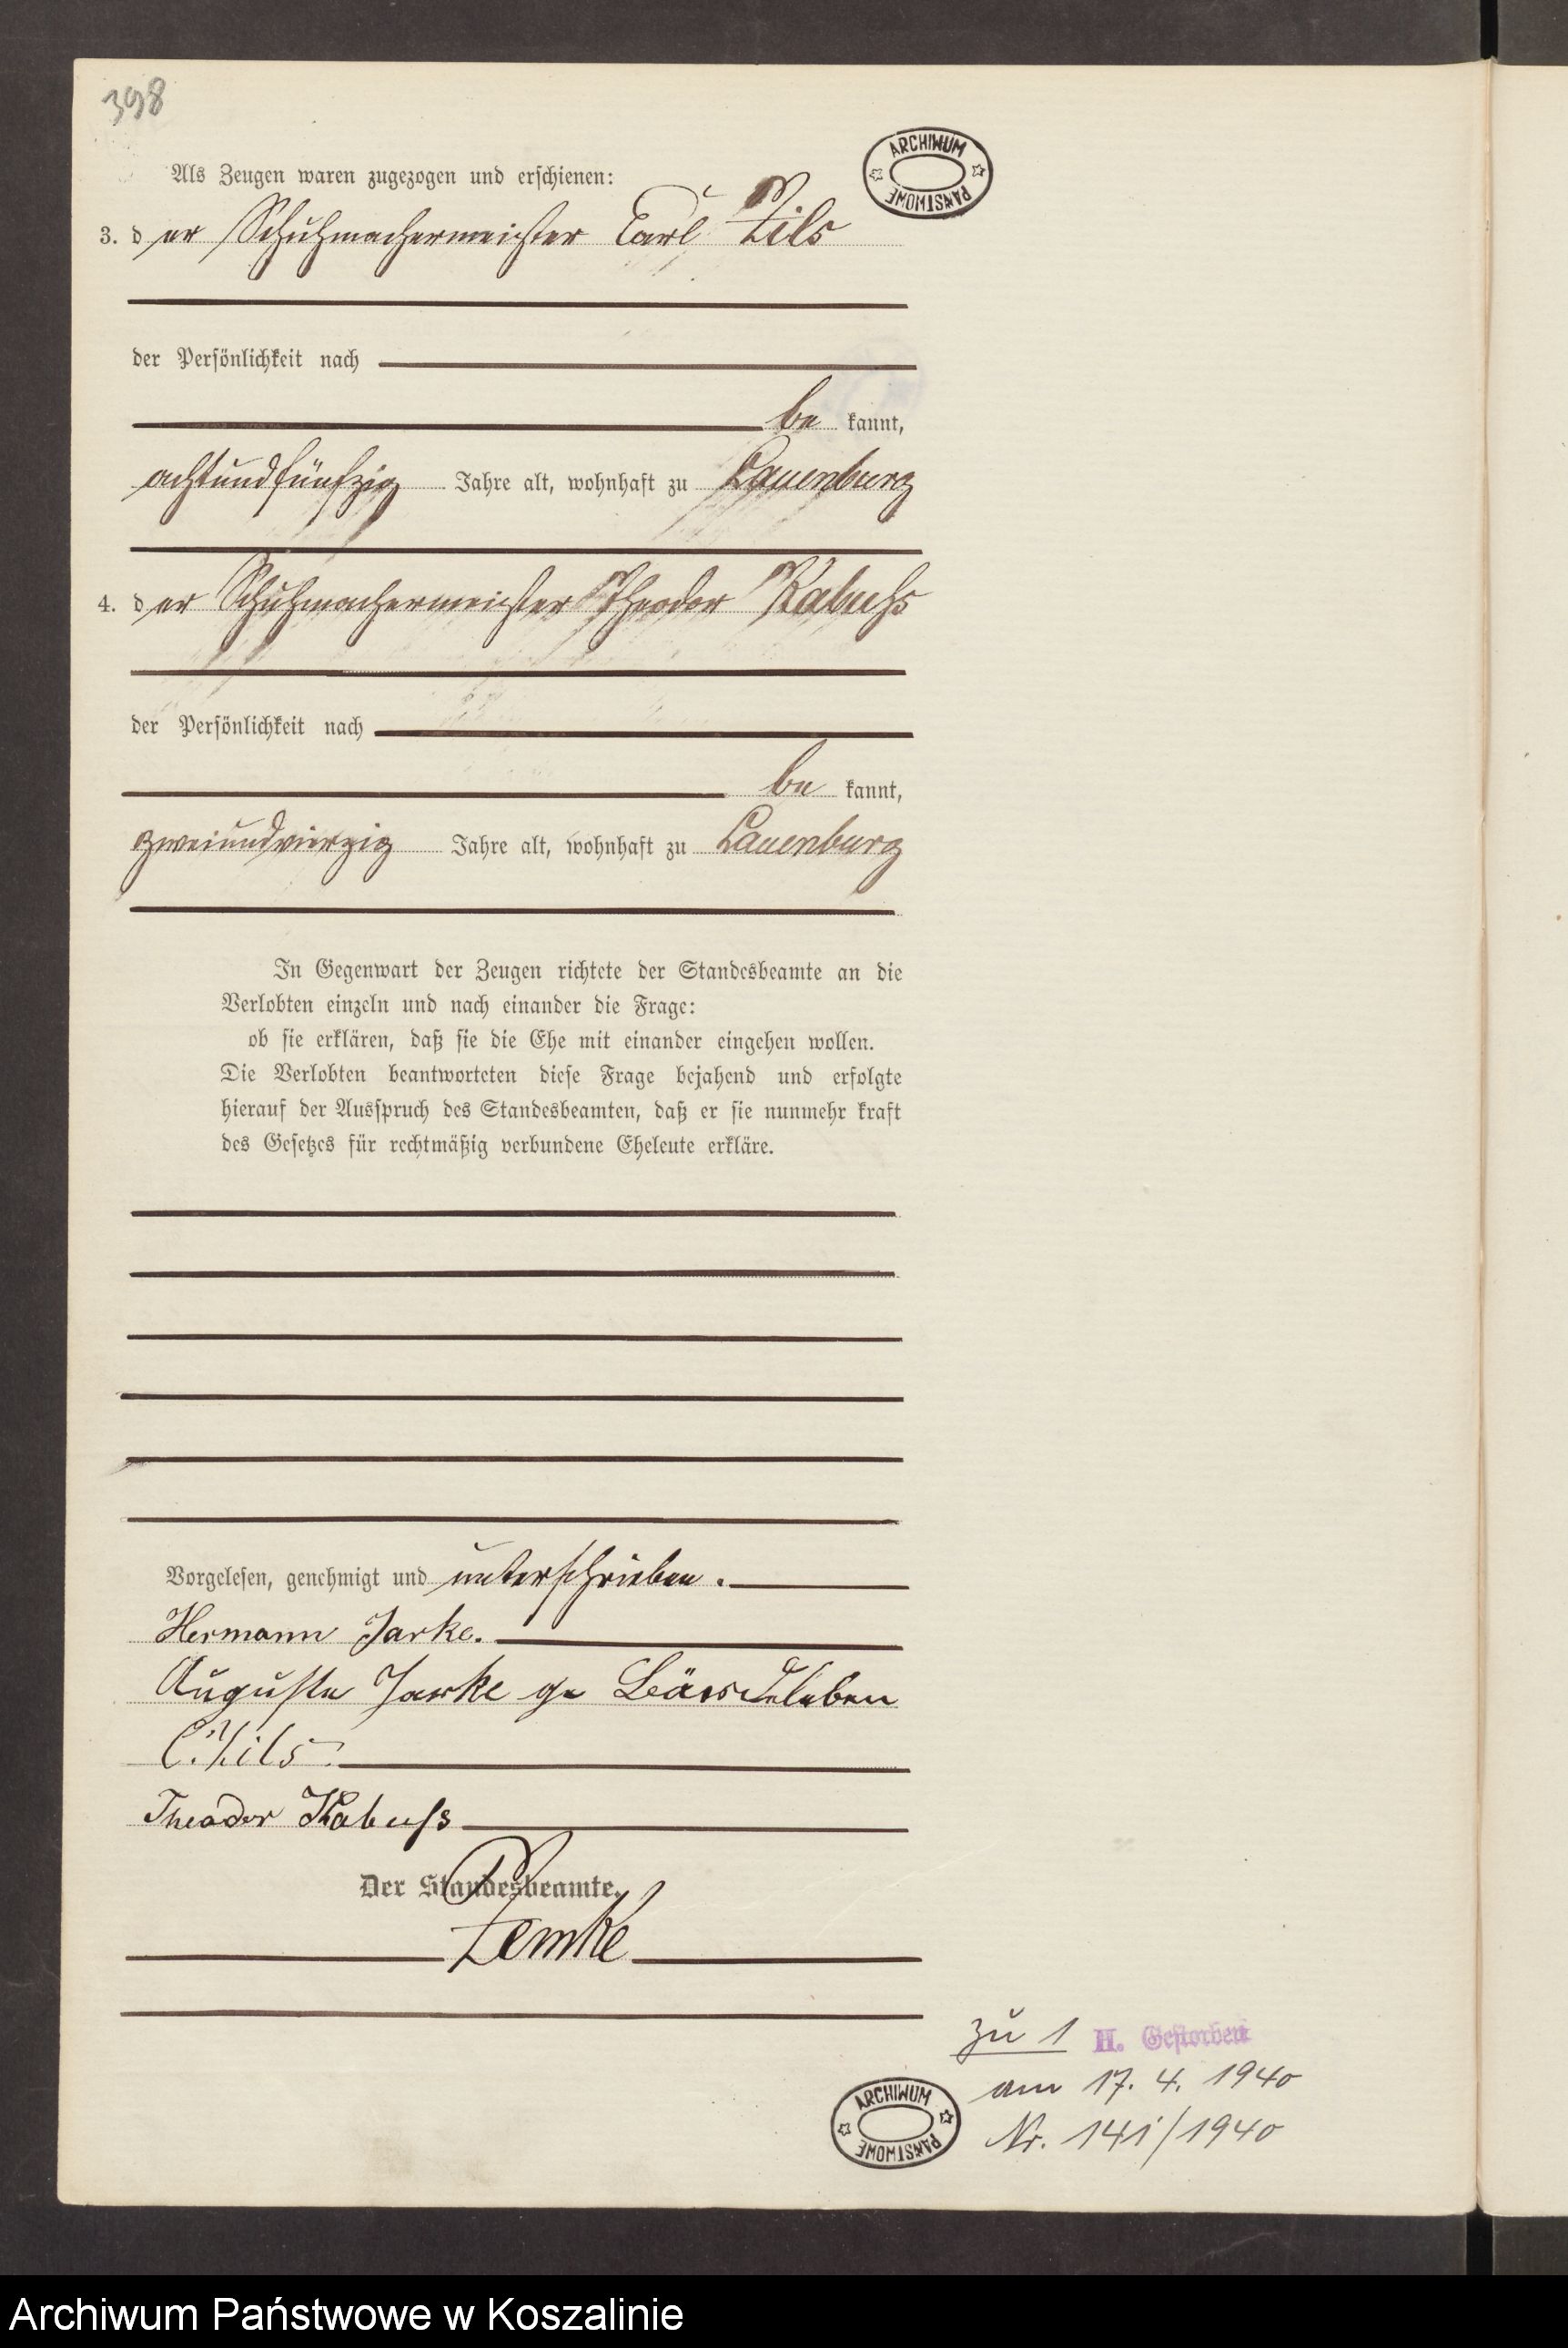 398
ARCHIWUM PAŃSTWOWE
Als Zeugen waren zugezogen und erschienen:
3. der Schuhmachermeister Carl Zils
der Persönlichkeit nach
be kannt,
achtundfünfzig Jahre alt, wohnhaft zu Lauenburg
4. der Schuhmachermeister Theodor Kabuhs
der Persönlichkeit nach
be kannt,
zweiundvierzig Jahre alt, wohnhaft zu Lauenburg
In Gegenwart der Zeugen richtete der Standesbeamte an die
Verlobten einzeln und nach einander die Frage:
ob sie erklären, daß sie die Ehe mit einander eingehen wollen.
Die Verlobten beantworteten diese Frage bejahend und erfolgte
hierauf der Ausspruch des Standesbeamten, daß er sie nunmehr kraft
des Gesetzes für rechtmäßig verbundene Eheleute erkläre.
Vorgelesen, genehmigt und unterschrieben.
Hermann Jarke.
Auguste Jarke ge
C. Zils.
Theodor Kabuhs
Der Standesbeamte.
Zemke
zu 1 H. Gestorben
am 17. 4. 1940
Nr. 141/1940
ARCHIWUM PAŃSTWOWE
Archiwum Państwowe w Koszalinie